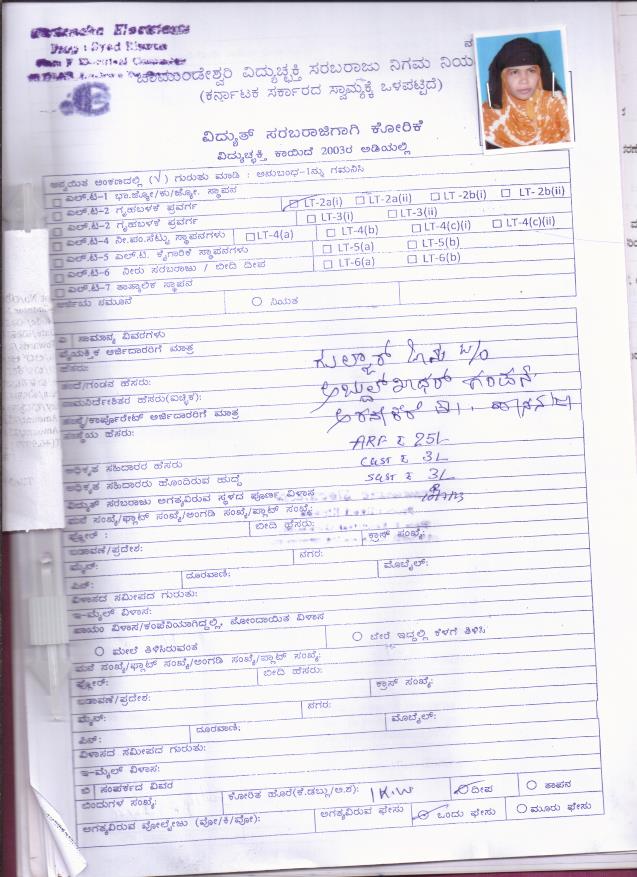 Prop : Syed
ಚಾಮುಂಡೇಶ್ವರಿ ವಿದ್ಯುಚ್ಛಕ್ತಿ ಸರಬರಾಜು ನಿಗಮ ನಿಯ
(ಕರ್ನಾಟಕ ಸರ್ಕಾರದ ಸ್ವಾಮ್ಯಕ್ಕೆ ಒಳಪಟ್ಟಿದೆ)
ವಿದ್ಯುತ್ ಸರಬರಾಜಿಗಾಗಿ ಕೋರಿಕೆ
ವಿದ್ಯುಚ್ಛಕ್ತಿ ಕಾಯಿದೆ 2003ರ ಅಡಿಯಲ್ಲಿ
ಅನ್ವಯಿತ ಅಂಕಣದಲ್ಲಿ (√) ಗುರುತು ಮಾಡಿ : ಅನುಬಂಧ-1ನ್ನು ಗಮನಿಸಿ
ಎಲ್.ಟಿ-1 ಭಾ.ಜ್ಯೋ/ಕು/ಜ್ಯೋ. ಸ್ಥಾಪನ
ಎಲ್.ಟಿ-2 ಗೃಹಬಳಕೆ ಪ್ರವರ್ಗ LT-2a(i) LT-2a(ii) LT -2b(i) LT- 2b(ii)
ಎಲ್.ಟಿ-2 ಗೃಹಬಳಕೆ ಪ್ರವರ್ಗ LT-3(i) LT-3(ii)
ಎಲ್.ಟಿ-4 ನೀ.ಪಂ.ಸೆಟ್ಟು ಸ್ಥಾಪನಗಳು LT-4(a) LT-4(b) LT-4(c)(i) LT-4(c)(ii)
ಎಲ್.ಟಿ-5 ಎಲ್.ಟಿ. ಕೈಗಾರಿಕೆ ಸ್ಥಾಪನಗಳು LT-5(a) LT-5(b)
ಎಲ್.ಟಿ-6 ನೀರು ಸರಬರಾಜು / ಬೀದಿ ದೀಪ LT-6(a) LT-6(b)
ಎಲ್.ಟಿ-7 ತಾತ್ಕಾಲಿಕ ಸ್ಥಾಪನ
ಅರ್ಜಿಯ ನಮೂನೆ ನಿಯತ
ಎ ಸಾಮಾನ್ಯ ವಿವರಗಳು
ವೈಯಕ್ತಿಕ ಅರ್ಜಿದಾರರಿಗೆ ಮಾತ್ರ
ಹೆಸರು:
ತಂದೆ/ಗಂಡನ ಹೆಸರು:
ನಾಮನಿರ್ದೇಶಿತರ ಹೆಸರು(ಐಚ್ಛಿಕ):
ಸಂಸ್ಥೆ/ಕಾರ್ಪೊರೇಟ್ ಅರ್ಜಿದಾರರಿಗೆ ಮಾತ್ರ
ಸಂಸ್ಥೆಯ ಹೆಸರು:
ARF ₹ 25/-
CGST ₹ 3/-
ಅಧಿಕೃತ ಸಹಿದಾರರ ಹೆಸರು
SGST ₹ 3/-
ಅಧಿಕೃತ ಸಹಿದಾರರು ಹೊಂದಿರುವ ಹುದ್ದೆ
ವಿದ್ಯುತ್ ಸರಬರಾಜು ಅಗತ್ಯವಿರುವ ಸ್ಥಳದ ಪೂರ್ಣ ವಿಳಾಸ
ಮನೆ ಸಂಖ್ಯೆ/ಫ್ಲಾಟ್ ಸಂಖ್ಯೆ/ಅಂಗಡಿ ಸಂಖ್ಯೆ/ಪ್ಲಾಟ್ ಸಂಖ್ಯೆ:
ಫ್ಲೋರ್ : ಬೀದಿ ಹೆಸರು:
ಬಡಾವಣೆ/ಪ್ರದೇಶ: ಕ್ರಾಸ್ ಸಂಖ್ಯೆ:
ಮೈನ್: ನಗರ:
ಪಿನ್: ದೂರವಾಣಿ: ಮೊಬೈಲ್:
ವಿಳಾಸದ ಸಮೀಪದ ಗುರುತು:
ಇ-ಮೈಲ್ ವಿಳಾಸ:
ಖಾಯಂ ವಿಳಾಸ/ಕಂಪೆನಿಯಾಗಿದ್ದಲ್ಲಿ, ನೋಂದಾಯಿತ ವಿಳಾಸ
ಮೇಲೆ ತಿಳಿಸಿರುವಂತೆ ಬೇರೆ ಇದ್ದಲ್ಲಿ ಕೆಳಗೆ ತಿಳಿಸಿ
ಮನೆ ಸಂಖ್ಯೆ/ಫ್ಲಾಟ್ ಸಂಖ್ಯೆ/ಅಂಗಡಿ ಸಂಖ್ಯೆ/ಪ್ಲಾಟ್ ಸಂಖ್ಯೆ:
ಫ್ಲೋರ್: ಬೀದಿ ಹೆಸರು:
ಬಡಾವಣೆ/ಪ್ರದೇಶ: ಕ್ರಾಸ್ ಸಂಖ್ಯೆ:
ಮೈನ್: ನಗರ:
ಪಿನ್: ದೂರವಾಣಿ: ಮೊಬೈಲ್:
ವಿಳಾಸದ ಸಮೀಪದ ಗುರುತು:
ಇ-ಮೈಲ್ ವಿಳಾಸ:
ಬಿ ಸಂಪರ್ಕದ ವಿವರ
ಬಿಂದುಗಳ ಸಂಖ್ಯೆ: ಕೋರಿತ ಹೊರೆ(ಕೆ.ಡಬ್ಲು/ಅ.ಶ): 1 K.W ದೀಪ ತಾಪನ
ಅಗತ್ಯವಿರುವ ವೋಲ್ಟೇಜು (ವೋ/ಕಿ/ವೋ): ಅಗತ್ಯವಿರುವ ಫೇಸು ಒಂದು ಫೇಸು ಮೂರು ಫೇಸು